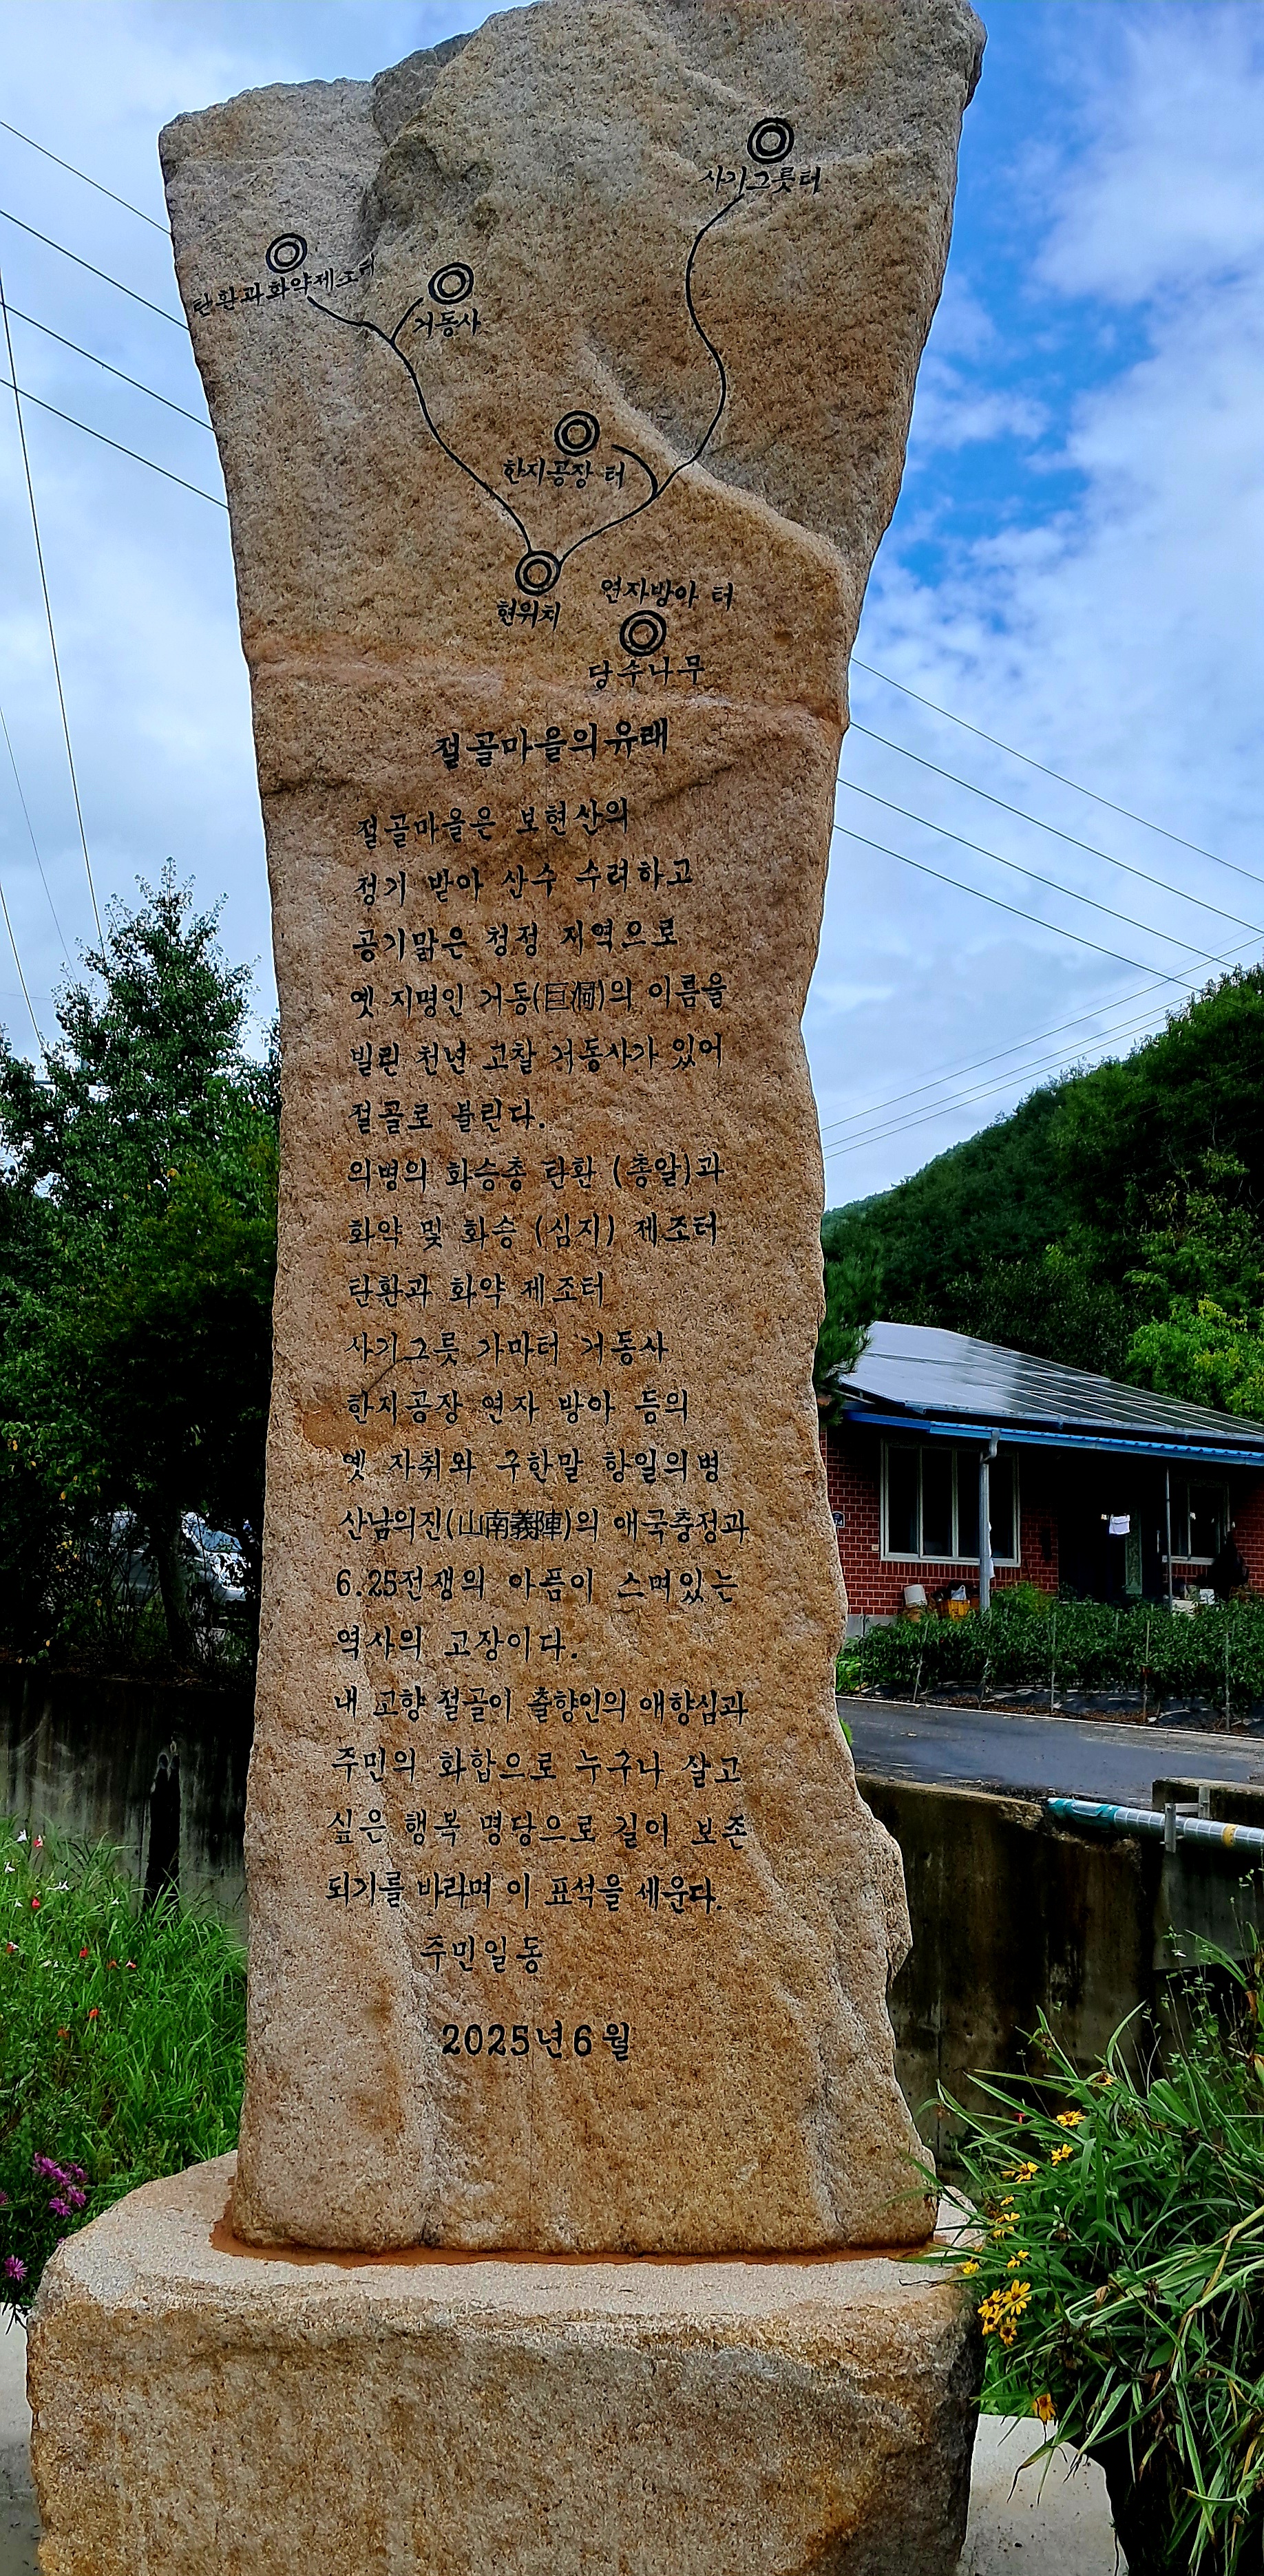 사기그릇터
탄환과화약제조터
거동사
한지공장 터
현위치
연자방아 터
당수나무
절골마을의유래
절골마을은 보현산의
정기 받아 산수 수려하고
공기맑은 청정 지역으로
옛 지명인 거동(巨洞)의 이름을
빌린 천년 고찰 거동사가 있어
절골로 불린다.
의병의 화승총 탄환 (총알)과
화약 및 화승 (심지) 제조터
탄환과 화약 제조터
사기그릇 가마터 거동사
한지공장 연자 방아 등의
옛 자취와 구한말 항일의병
산남의진(山南義陣)의 애국충정과
6.25전쟁의 아픔이 스며있는
역사의 고장이다.
내 고향 절골이 출향인의 애향심과
주민의 화합으로 누구나 살고
싶은 행복 명당으로 길이 보존
되기를 바라며 이 표석을 세운다.
주민일동
2025년6월